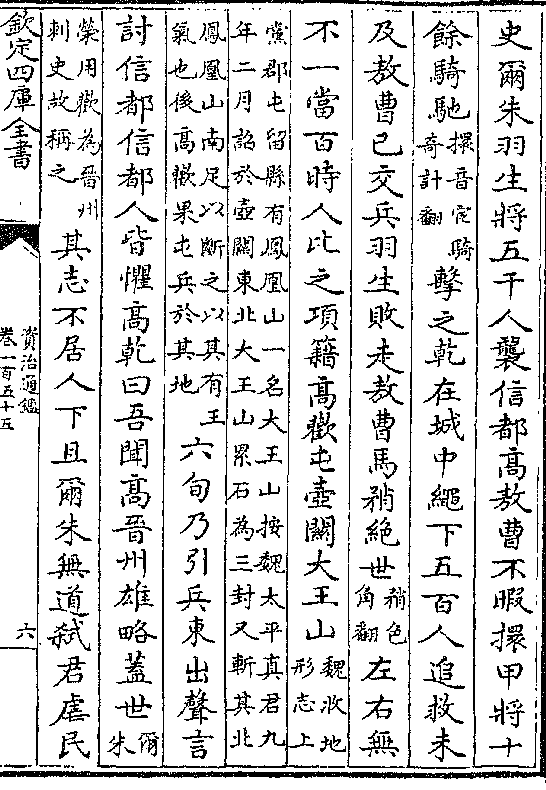 史爾朱羽生將五千人襲信都髙敖曹不暇擐甲將十
餘騎馳擐音宦騎奇計翻擊之乾在城中繩下五百人追救未
及敖曹已交兵羽生敗走敖曹馬矟絶世矟色角翻左右無
不一當百時人比之項籍髙歡屯壺闗大王山魏收地形志上
黨郡屯留縣有鳳凰山一名大王山按魏太平真君九年二月詔於壺闗東北大王山累石為三封又斬其北
鳳凰山南足以斷之以其有王氣也後髙歡果屯兵於其地六旬乃引兵東出聲言
討信都信都人皆懼髙乾曰吾聞髙晉州雄略蓋世爾朱
榮用歡為晉州刺史故稱之其志不居人下且爾朱無道弑君虐民
欽定四庫全書
資治通鑑
卷一百五十五
六